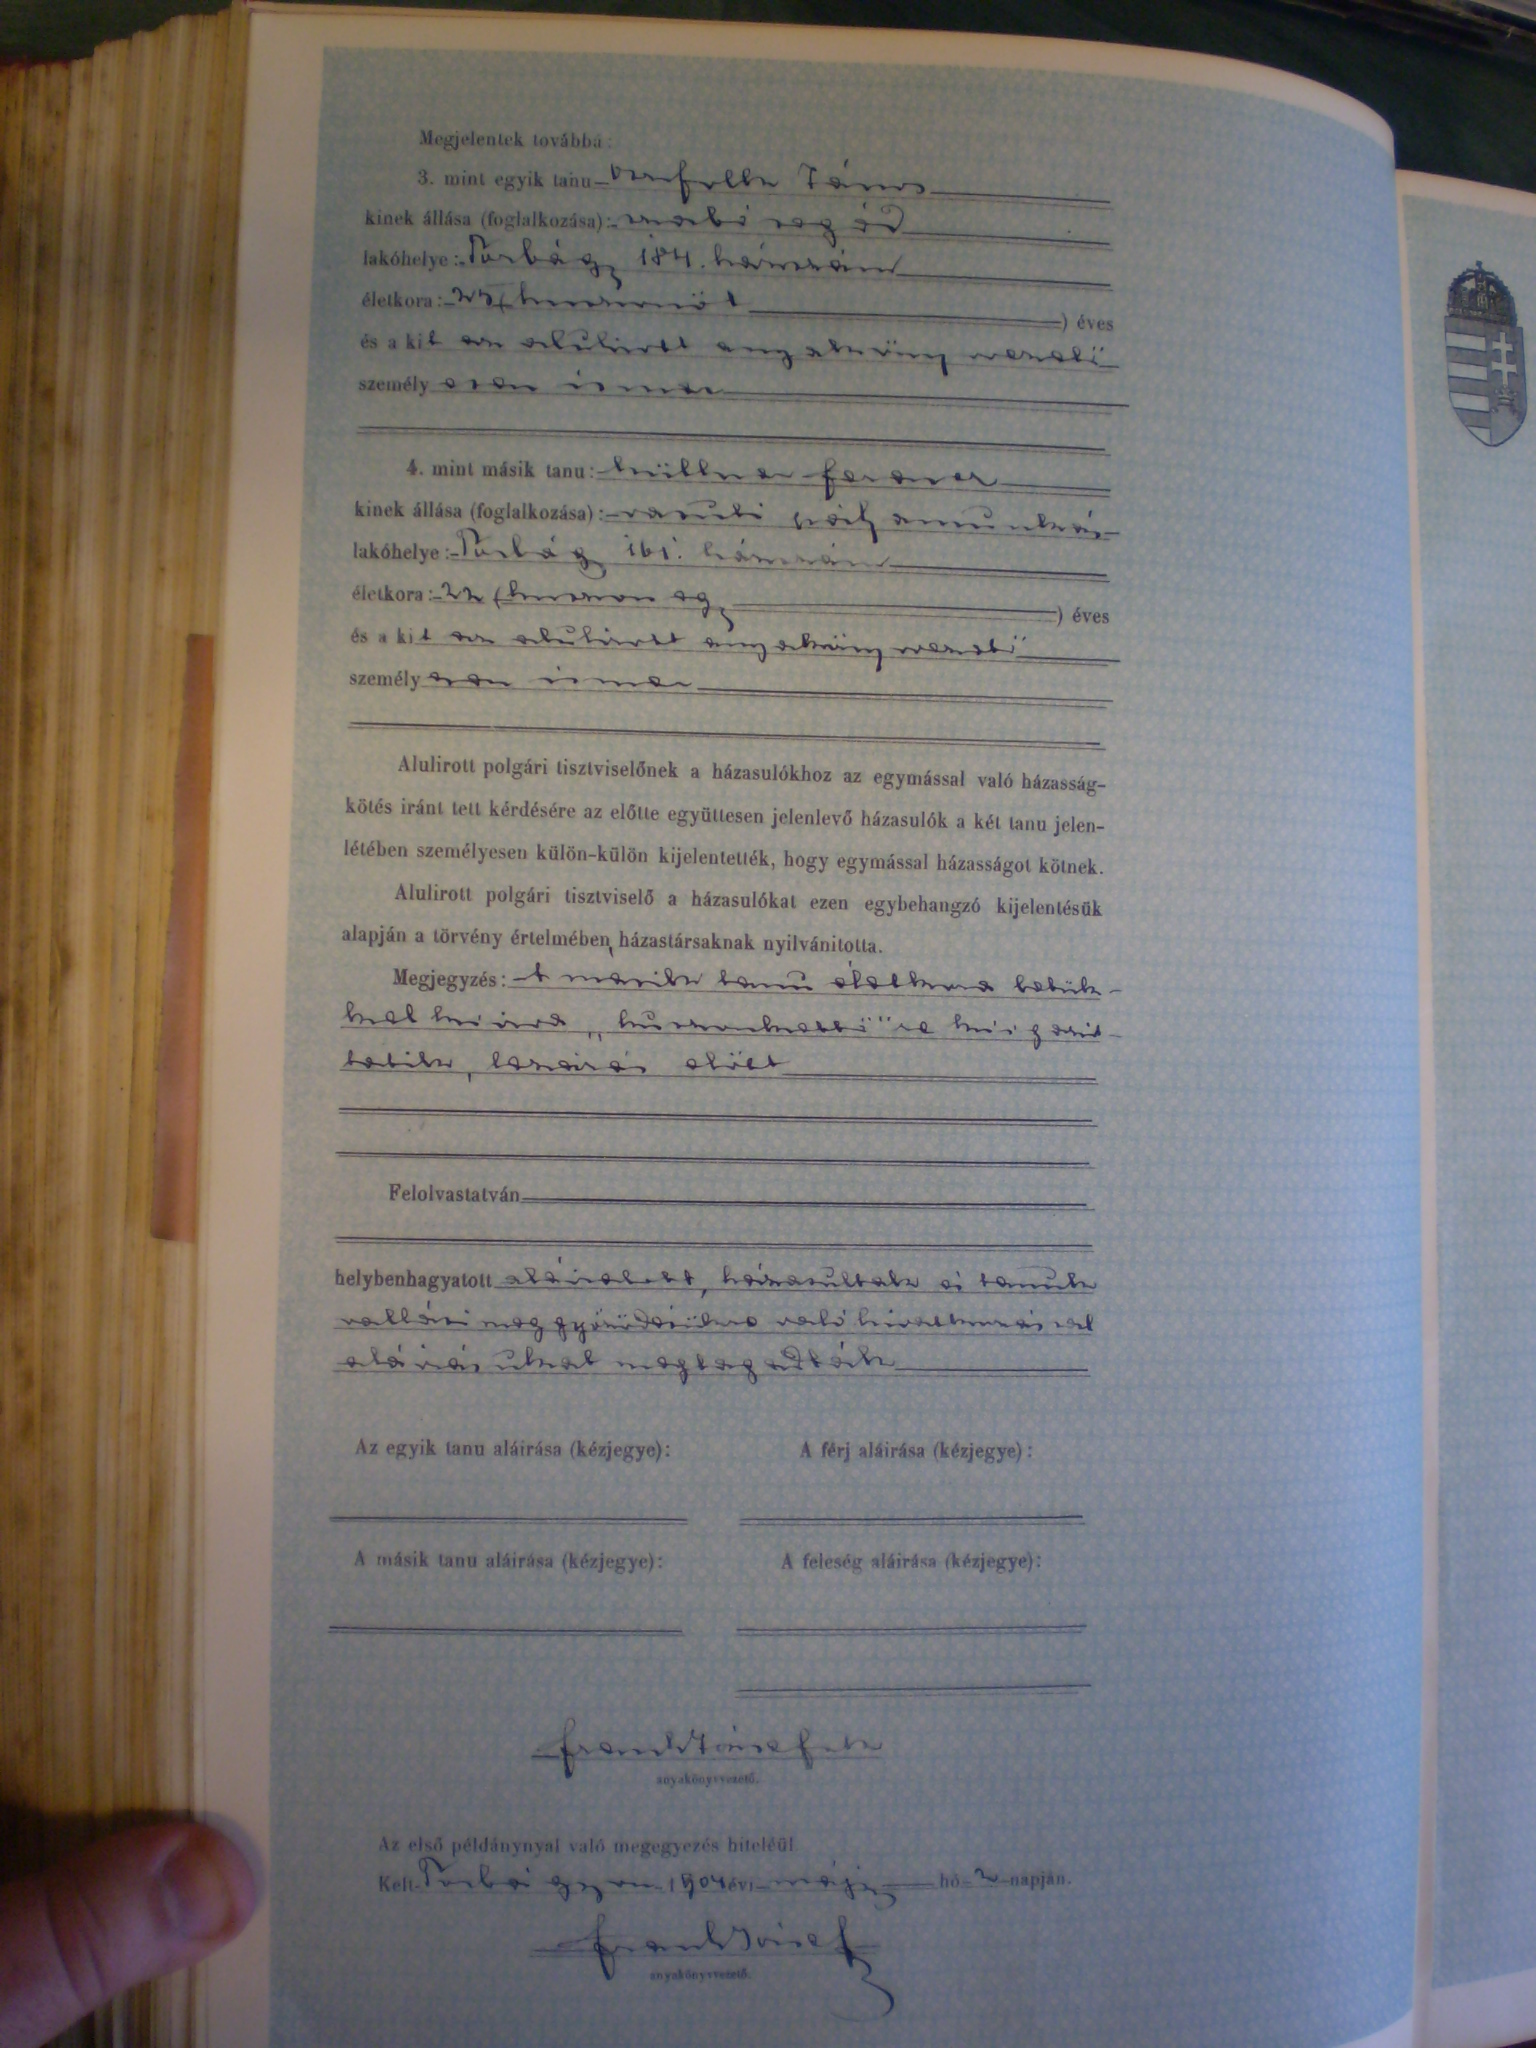 Megjelentek továbbá:
3. mint egyik tanu János
kinek állása (foglalkozása): szabó segéd
lakóhelye: Torbágy 184. házszám
életkora: 25 (huszonöt) éves
és a kit az alulirott anyakönyvvezető
személyesen ismer
4. mint másik tanu: Ferencz
kinek állása (foglalkozása): vasuti pályamunkás
lakóhelye: Torbágy 161. házszám
életkora: 22 (huszonegy) éves
és a kit az alulirott anyakönyvvezető
személyesen ismer
Alulirott polgári tisztviselőnek a házasulókhoz az egymással való házasság-
kötés iránt tett kérdésére az előtte együttesen jelenlevő házasulók a két tanu jelen-
létében személyesen külön-külön kijelentették, hogy egymással házasságot kötnek.
Alulirott polgári tisztviselő a házasulókat ezen egybehangzó kijelentésük
alapján a törvény értelmében, házastársaknak nyilvánitotta.
Megjegyzés: A másik tanu életkora betük-
kel kiirva „huszonkettő"re kiigazit-
tatik, lezárás előtt
Felolvastatván
helybenhagyatott aláiratott, házasultak és tanuk
vallási meggyőződésükre való hivatkozással
aláirásukat megtagadták
Az egyik tanu aláirása (kézjegye):
A férj aláirása (kézjegye):
A másik tanu aláirása (kézjegye):
A feleség aláirása (kézjegye):
Frank József
anyakönyvvezető.
Az első példánynyal való megegyezés hiteléül
Kelt Torbágyon 1904 évi május hó 2 napján.
Frank József
anyakönyvvezető.